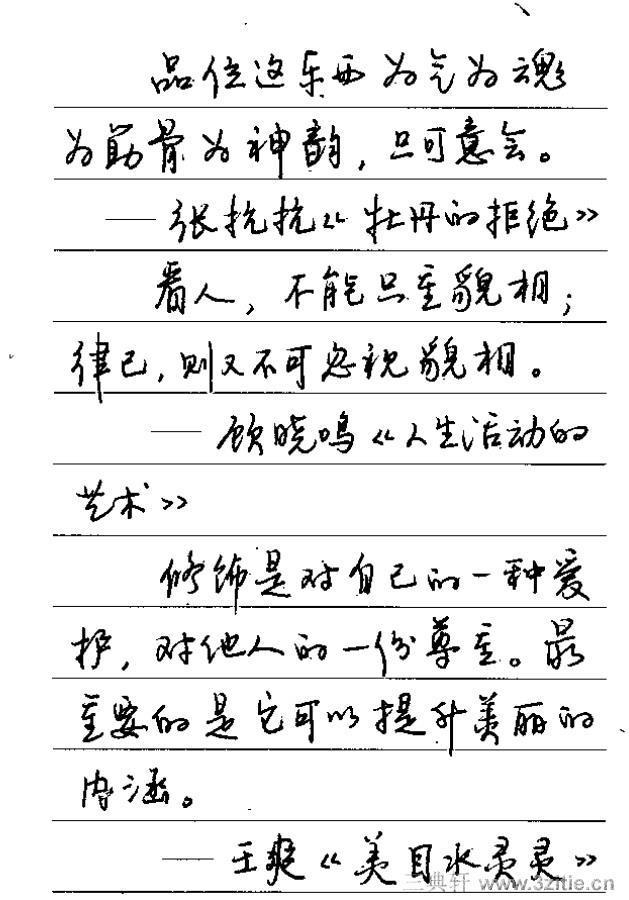 品位这东西为气为魂
为筋骨为神韵，只可意会。
——张抗抗《牡丹的拒绝》
看人，不能只重貌相；
律己，则又不可忽视貌相。
——顾晓鸣《人生活动的
艺术》
修饰是对自己的一种爱
护，对他人的一份尊重。最
重要的是它可以提升美丽的
内涵。
——王爽《美目水灵灵》
三典轩 www.32itie.cn